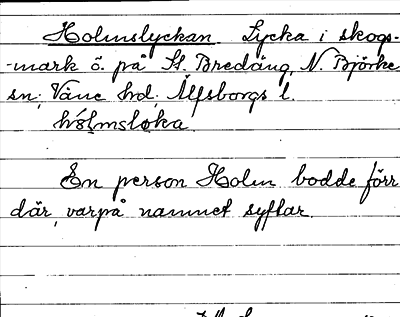 Holmslyckan Lycka i skogs-
-mark ö. på St. Bredäng, N. Björke
sn, Väne hd, Älfsborgs l.
hólmsløka
En person Holm bodde förr
där, varpå namnet syftar.